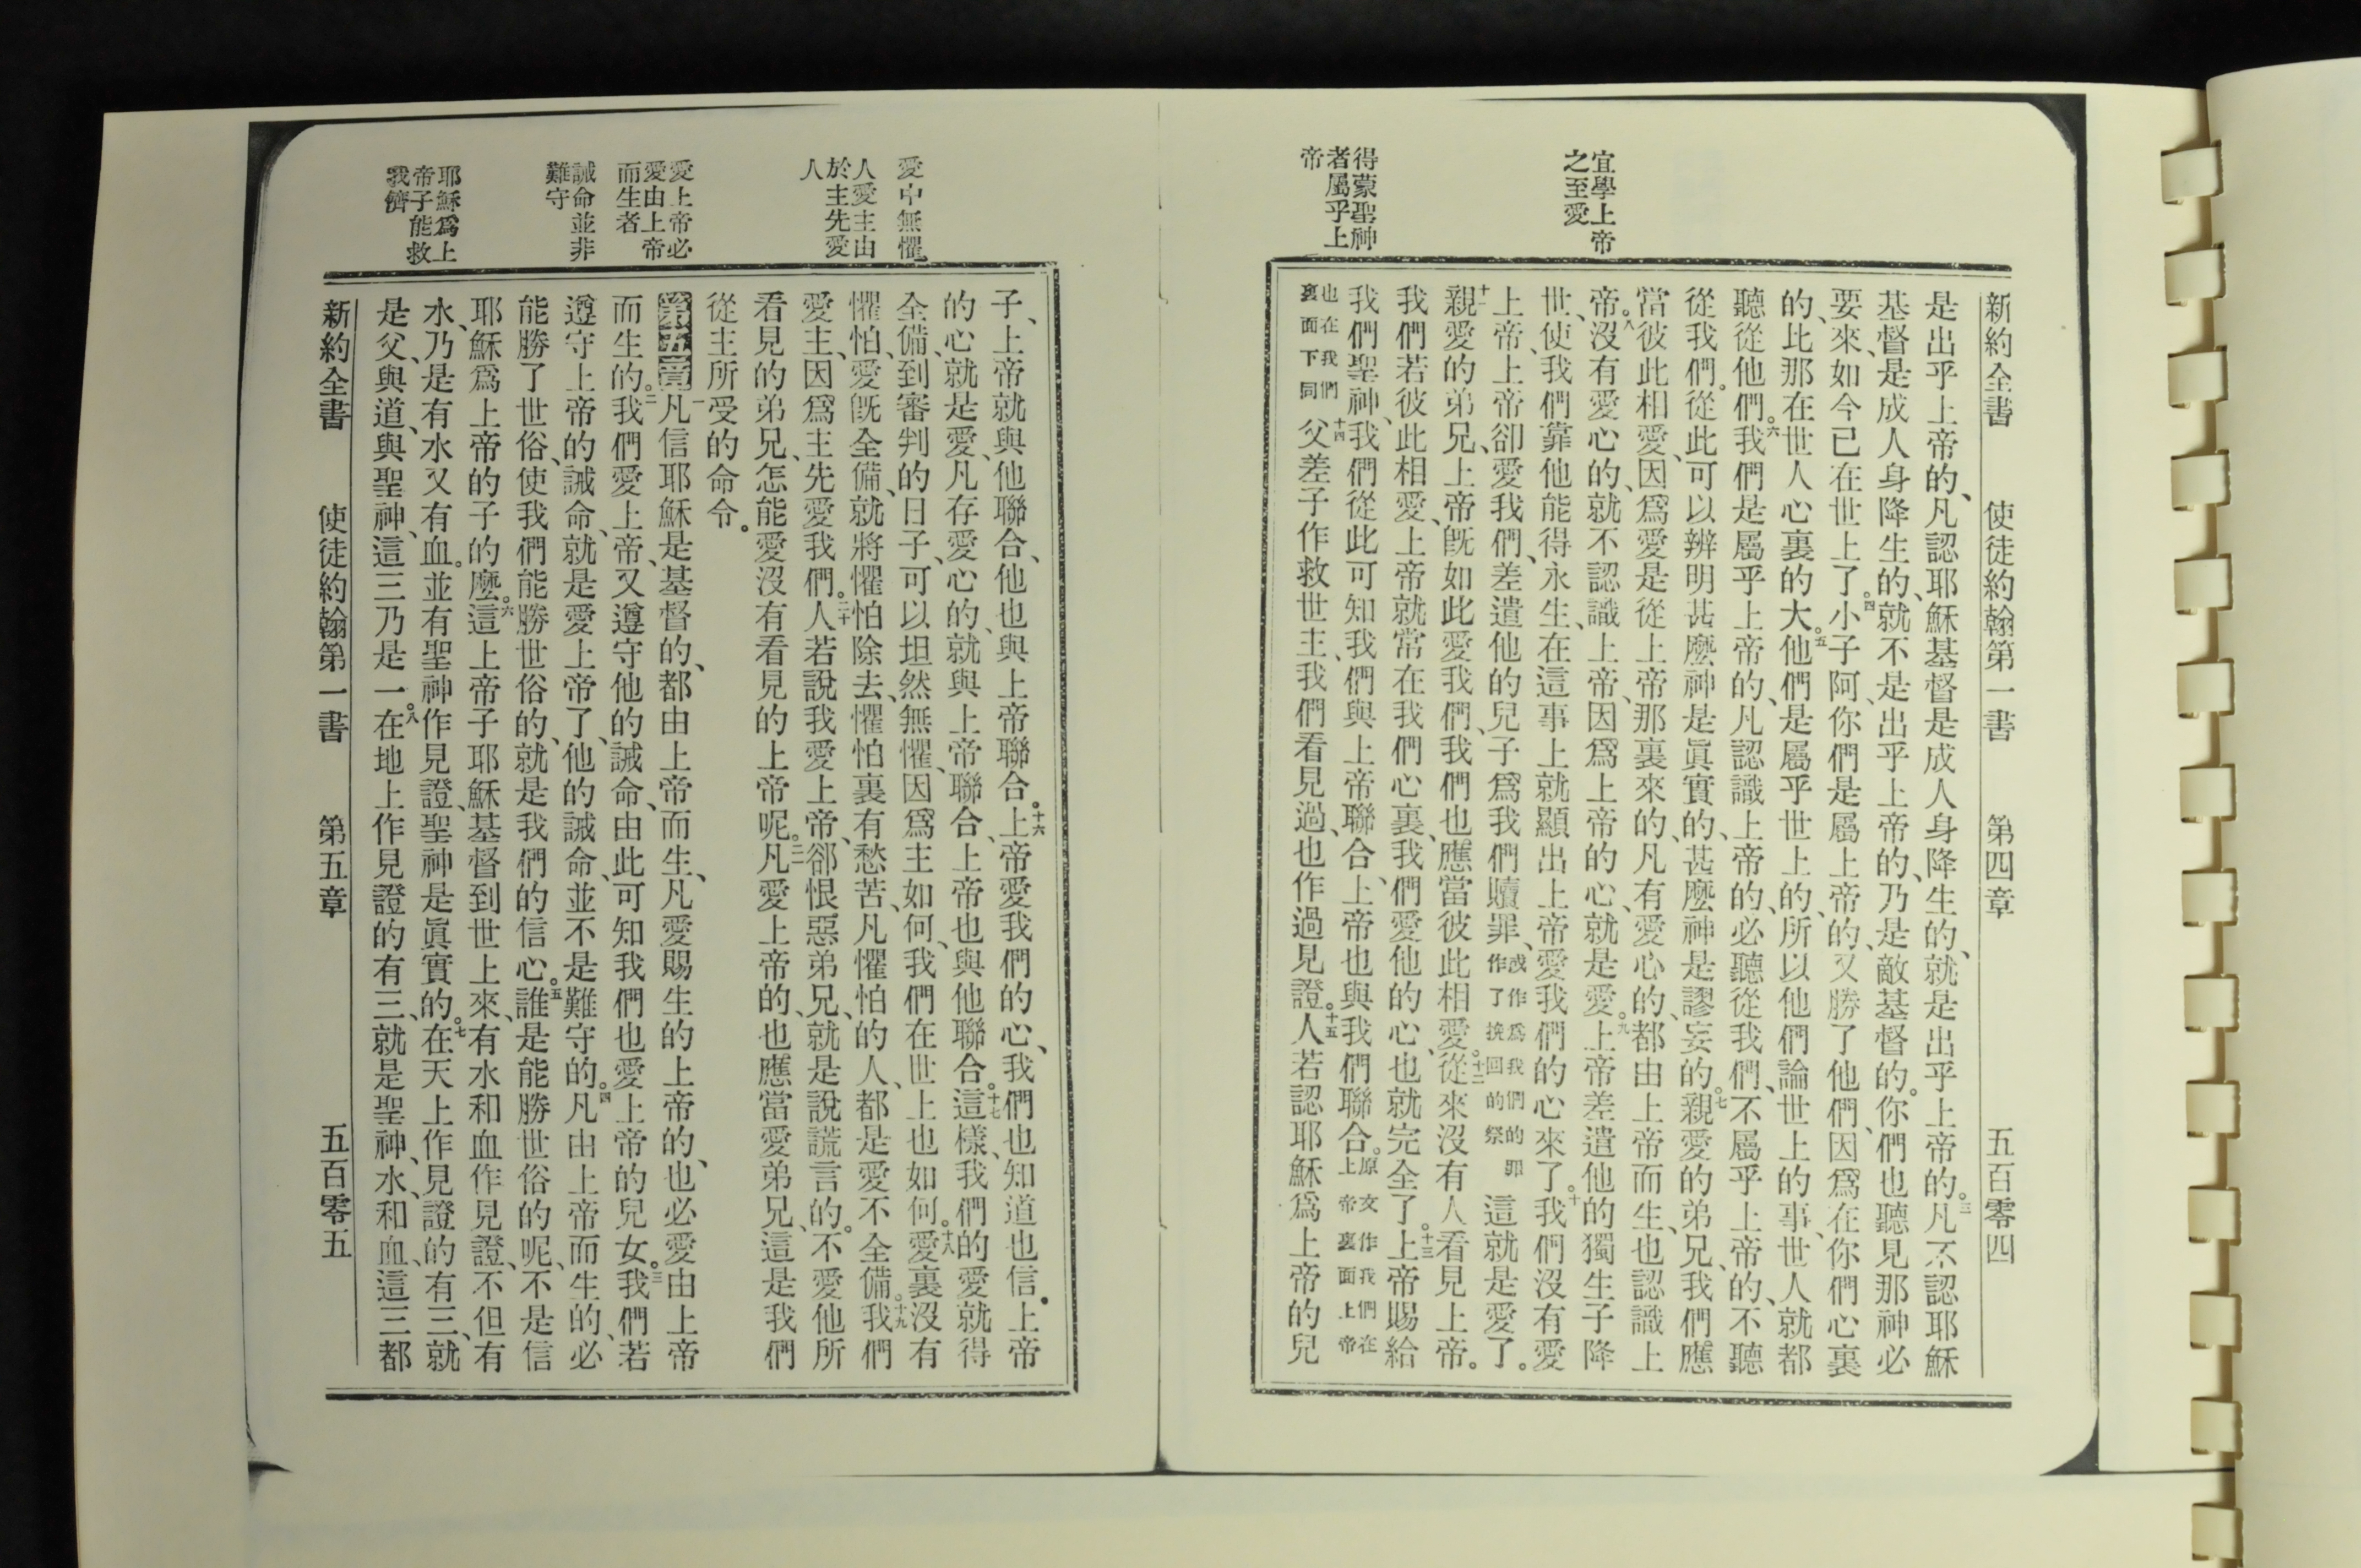 宜學上帝
之至愛
得蒙聖神
者屬乎上
帝
新約全書 使徒約翰第一書 第四章 五百零四
是出乎上帝的、凡認耶穌基督是成人身降生的、就是出乎上帝的。三凡不認耶穌
基督是成人身降生的、就不是出乎上帝的、乃是敵基督的。你們也聽見那神必
要來、如今已在世上了。四小子阿、你們是屬上帝的、又勝了他們、因爲在你們心裏
的、比那在世人心裏的大。五他們是屬乎世上的、所以他們論世上的事、世人就都
聽從他們。六我們是屬乎上帝的、凡認識上帝的、必聽從我們、不屬乎上帝的、不聽
從我們。從此可以辨明甚麼神是眞實的、甚麼神是謬妄的。七親愛的弟兄、我們應
當彼此相愛、因爲愛是從上帝那裏來的、凡有愛心的、都由上帝而生、也認識上
帝。八沒有愛心的、就不認識上帝、因爲上帝的心、就是愛。九上帝差遣他的獨生子降
世、使我們靠他能得永生、在這事上就顯出上帝愛我們的心來了。十我們沒有愛
上帝、上帝卻愛我們、差遣他的兒子爲我們贖罪、或作爲我們的罪作了挽回的祭這就是愛了。
十一親愛的弟兄、上帝旣如此愛我們、我們也應當彼此相愛。十二從來沒有人看見上帝。
我們若彼此相愛、上帝就常在我們心裏、我們愛他的心、也就完全了。十三上帝賜給
我們聖神、我們從此可知我們與上帝聯合、上帝也與我們聯合。原文作我們在上帝裏面上帝
也在我們裏面下同十四父差子作救世主、我們看見過、也作過見證。十五人若認耶穌爲上帝的兒
愛中無懼
人愛主由
於主先愛
人
愛上帝必
愛由上帝
而生者
誡命並非
難守
耶穌爲上
帝子能救
我儕
子、上帝就與他聯合、他也與上帝聯合。十六上帝愛我們的心、我們也知道也信。上帝
的心就是愛、凡存愛心的、就與上帝聯合、上帝也與他聯合。十七這樣、我們的愛就得
全備、到審判的日子、可以坦然無懼、因爲主如何、我們在世上也如何。十八愛裏沒有
懼怕、愛旣全備、就將懼怕除去、懼怕裏有愁苦、凡懼怕的人、都是愛不全備。十九我們
愛主、因爲主先愛我們。二十人若說我愛上帝、卻恨惡弟兄、就是說謊言的。不愛他所
看見的弟兄、怎能愛沒有看見的上帝呢。二一凡愛上帝的、也應當愛弟兄、這是我們
從主所受的命令。
第五章一凡信耶穌是基督的、都由上帝而生、凡愛賜生的上帝的、也必愛由上帝
而生的。二我們愛上帝、又遵守他的誡命、由此可知我們也愛上帝的兒女。三我們若
遵守上帝的誡命、就是愛上帝了、他的誡命、並不是難守的。四凡由上帝而生的、必
能勝了世俗、使我們能勝世俗的、就是我們的信心。五誰是能勝世俗的呢、不是信
耶穌爲上帝的子的麼。六這上帝子耶穌基督到世上來、有水和血作見證、不但有
水、乃是有水又有血。並有聖神作見證、聖神是眞實的。七在天上作見證的有三、就
是父、與道、與聖神、這三乃是一。八在地上作見證的有三、就是聖神、水、和血、這三都
新約全書 使徒約翰第一書 第五章 五百零五